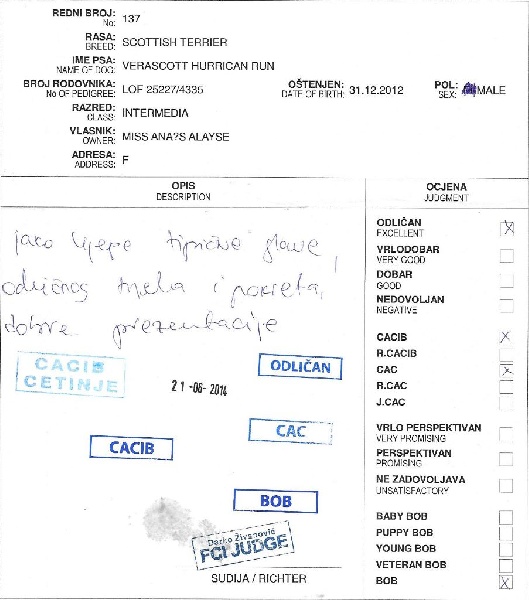 REDNI BROJ: 137
No:
RASA: SCOTTISH TERRIER
BREED:
IME PSA: VERASCOTT HURRICAN RUN
NAME OF DOG:
BROJ RODOVNIKA: LOF 25227/4335 OŠTENJEN: 31.12.2012 POL: MALE
No OF PEDIGREE: DATE OF BIRTH: SEX:
RAZRED: INTERMEDIA
CLASS:
VLASNIK: MISS ANA?S ALAYSE
OWNER:
ADRESA: F
ADDRESS:
OPIS
DESCRIPTION
jako lijepe tipične glave,
odličnog tijela i pokreta,
dobre prezentacije
CACIB
CETINJE
21-06-2014
ODLIČAN
CAC
CACIB
BOB
Darko Živanović
FCI JUDGE
SUDIJA / RICHTER
OCJENA
JUDGMENT
ODLIČAN X
EXCELLENT
VRLODOBAR
VERY GOOD
DOBAR
GOOD
NEDOVOLJAN
NEGATIVE
CACIB X
R.CACIB
CAC X
R.CAC
J.CAC
VRLO PERSPEKTIVAN
VERY PROMISING
PERSPEKTIVAN
PROMISING
NE ZADOVOLJAVA
UNSATISFACTORY
BABY BOB
PUPPY BOB
YOUNG BOB
VETERAN BOB
BOB X